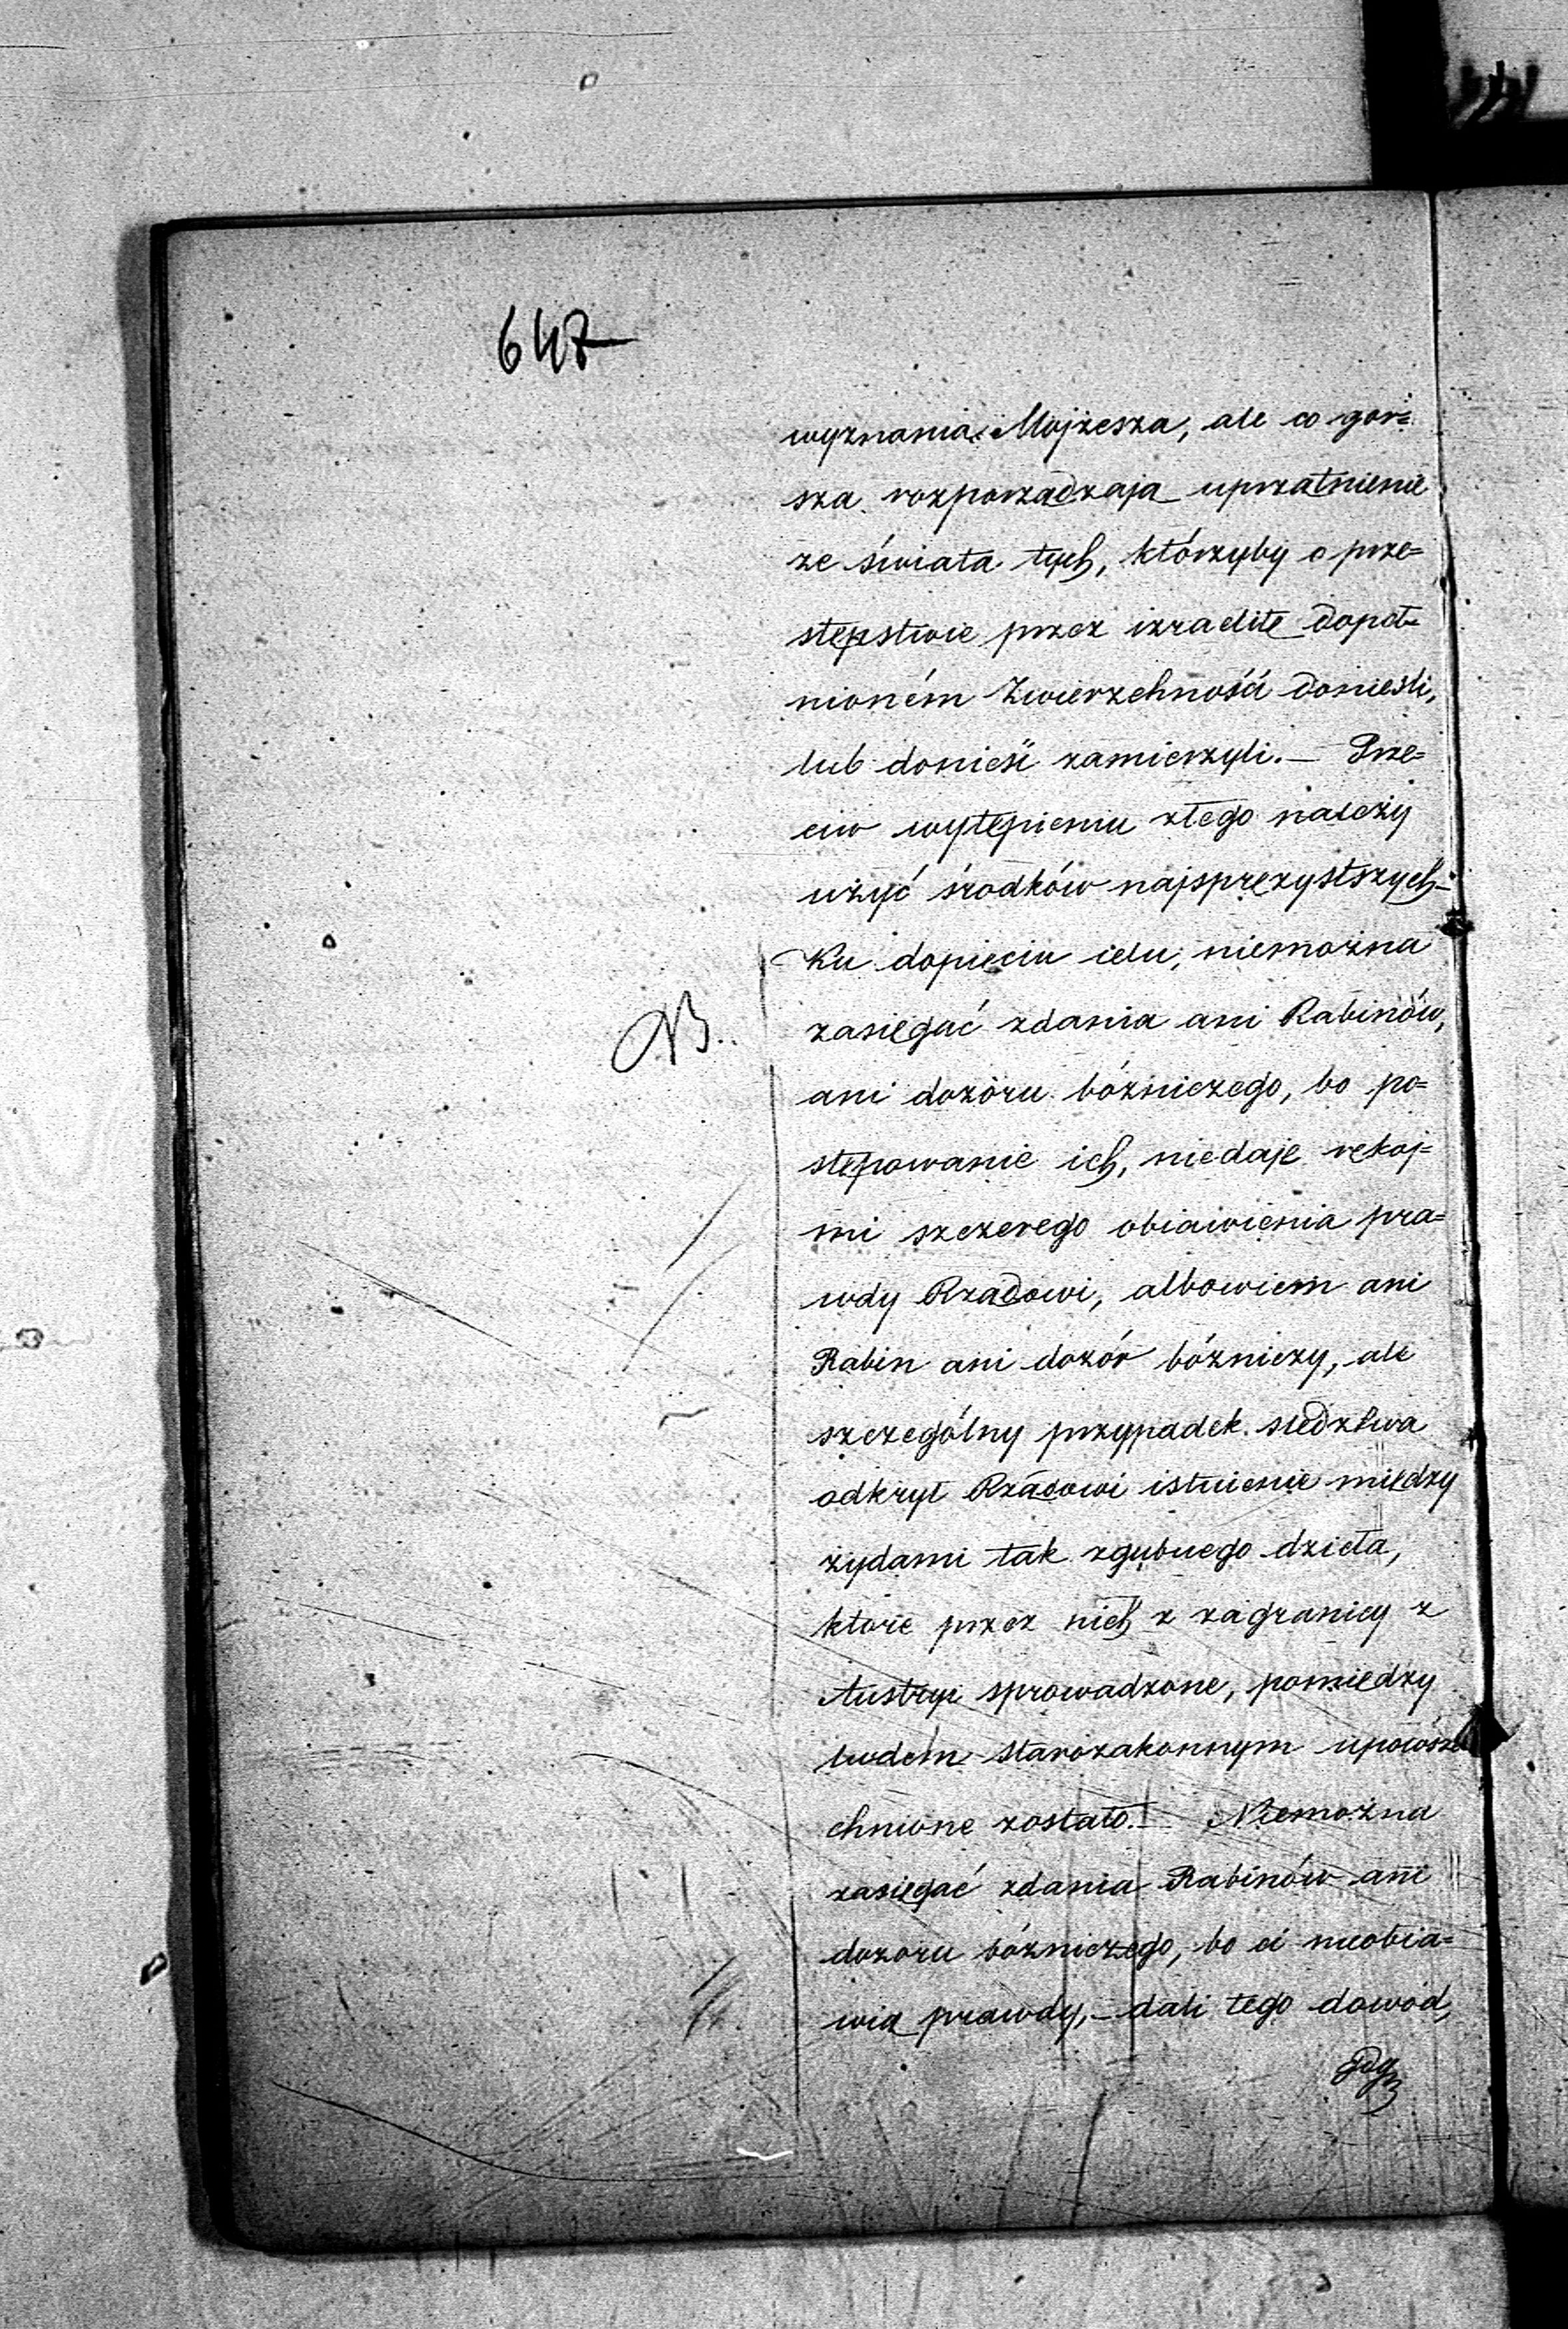 647
wyznania Mojżesza, ale co gor=
sza rozporządzają uprzątnienie
ze świata tych, którzyby o prze=
stępstwie przez izraelitę dopeł=
nioném Zwierzchności donieśli,
lub donieść zamierzyli. — Prze=
ciw wytępieniu złego należy
użyć środków najsprężystszych —
Ku dopięciu celu, niemożna
NB.
zasięgać zdania ani Rabinów,
ani dozoru bóżniczego, bo po=
stępowanie ich, niedaje rękoj=
mi szczerego obiawienia pra=
wdy Rządowi, albowiem ani
Rabin ani dozór bóżniczy, ale
szczególny przypadek śledztwa
odkrył Rządowi istnienie między
żydami tak zgubnego dzieła,
które przez nich z zagranicy z
Austryi sprowadzone, pomiędzy
ludem starozakonnym upowsze
chnione zostało. — Niemożna
zasięgać zdania Rabinów ani
dozoru bóżniczego, bo ci nieobia=
wią prawdy, — dali tego dowód,